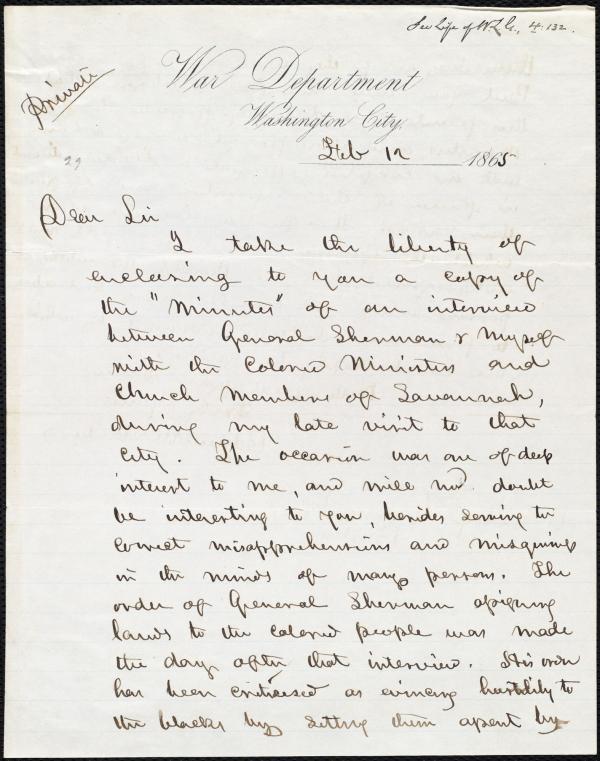 See Life of W.L.G., 4:132.
Private
War Department
Washington City,
Feb 12 1865
29
Dear Sir
I take the liberty of
enclosing to you a copy of
the "minutes" of an interview
between General Sherman & myself
with the Colored Ministers and
Church Members of Savannah,
during my late visit to that
city. The occasion was one of deep
interest to me, and will no doubt
be interesting to you, besides serving to
correct misapprehensions and misgivings
in the minds of many persons. The
order of General Sherman assigning
lands to the colored people was made
the day after that interview. His order
has been criticised as evincing hostility to
the blacks by setting them apart by